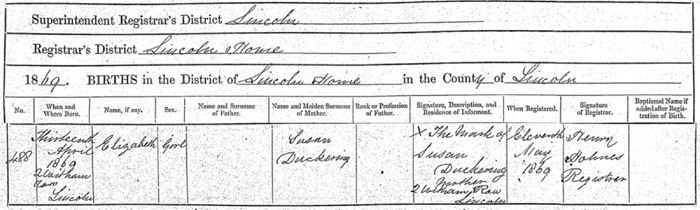 Superintendent Registrar's District Lincoln
Registrar's District Lincoln Home
1869. BIRTHS in the District of Lincoln Home in the County of Lincoln
No. When and Where Born. Name, if any. Sex. Name and Surname of Father. Name and Maiden Surname of Mother. Rank or Profession of Father. Signature, Description, and Residence of Informant. When Registered. Signature of Registrar. Baptismal Name if added after Registration of Birth.
488 Thirteenth April 1869 2 Witham Row Lincoln Elizabeth Girl Susan Duckering X The Mark of Susan Duckering Mother 2 Witham Row Lincoln Eleventh May 1869 Henry Holmes Registrar